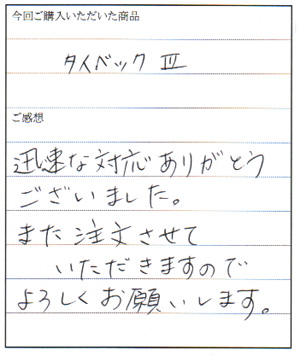 今回ご購入いただいた商品
タイベック Ⅲ
ご感想
迅速な対応ありがとう
ございました。
また注文させて
いただきますので
よろしくお願いします。